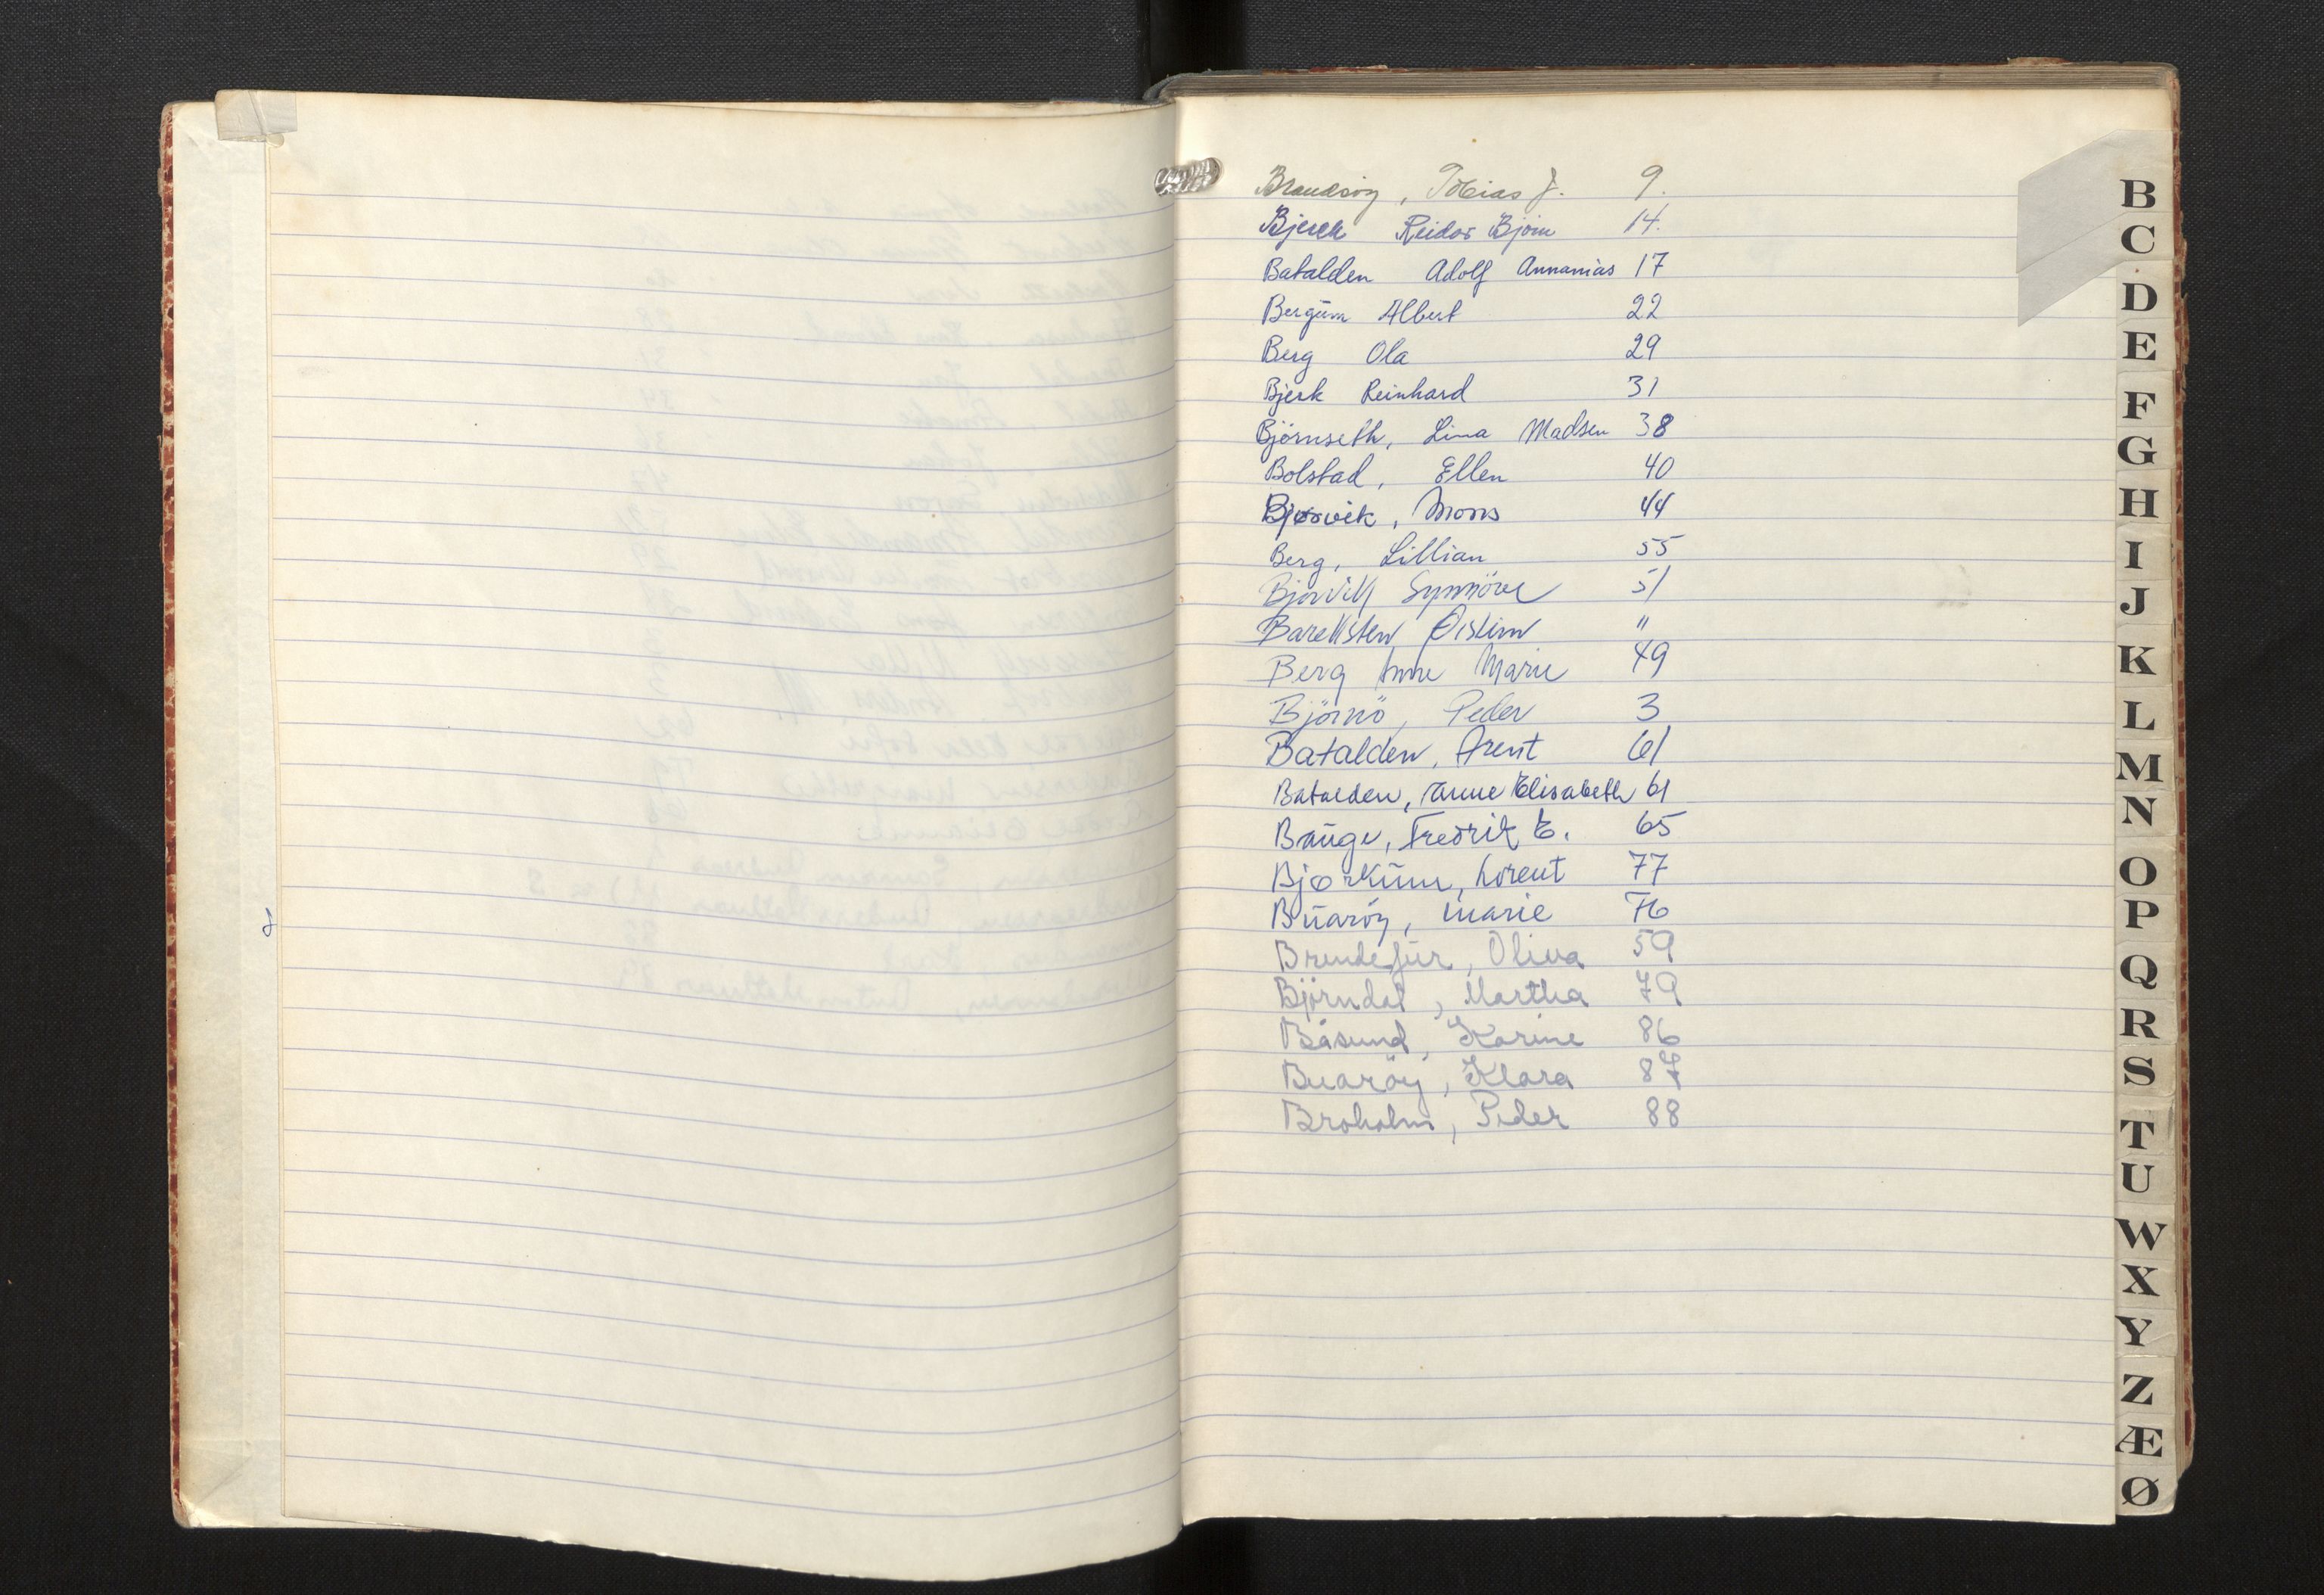 Brandsöy, Tobias J. 9.
Bjerck Reidar Bjørn 14.
Batalden Adolf Annanias 17
Bergum Albert 22
Berg Ola 29
Bjerk Reinhard 31
Björnseth, Lina Madsen 38
Bolstad, Ellen 40
Bjørvik, Mons 44
Berg, Lillian 55
Bjørvik Synnöve 51
Bareksten Öistein "
Berg Anne Marie 49
Björnö, Peder 3
Batalden, Arent 61
Batalden, Anne Elisabeth 61
Bauge, Fredrik E. 65
Bjørkum, Lorent 77
Buaröy, Marie 76
Brendefur, Oliva 59
Björndal, Martha 79
Båsund, Karine 86
Buaröy, Klara 87
Broholm, Peder 88
B
C
D
E
F
G
H
I
J
K
L
M
N
O
P
Q
R
S
T
U
W
X
Y
Z
Æ
Ø